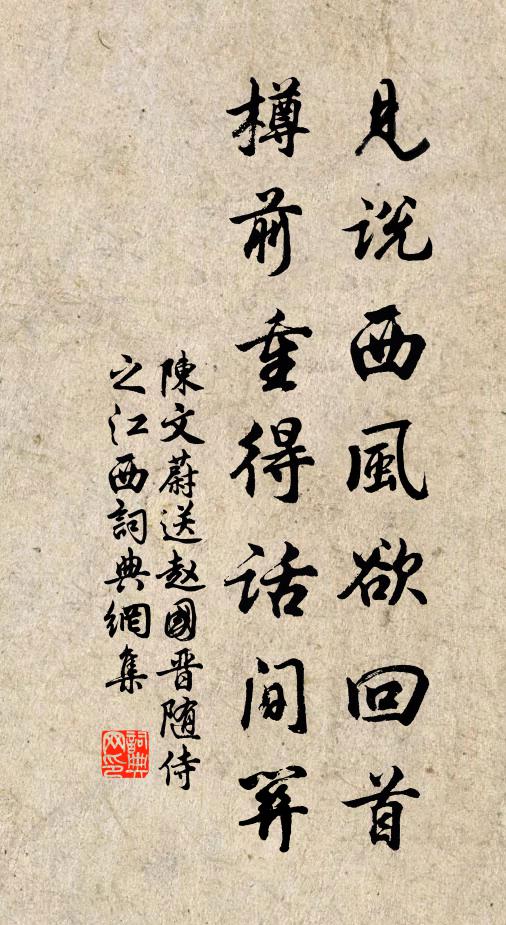 見说西風欲回首
樽前重得话間關
陳文蔚送赵國晋随侍
之江西詞典網集
詞典网印